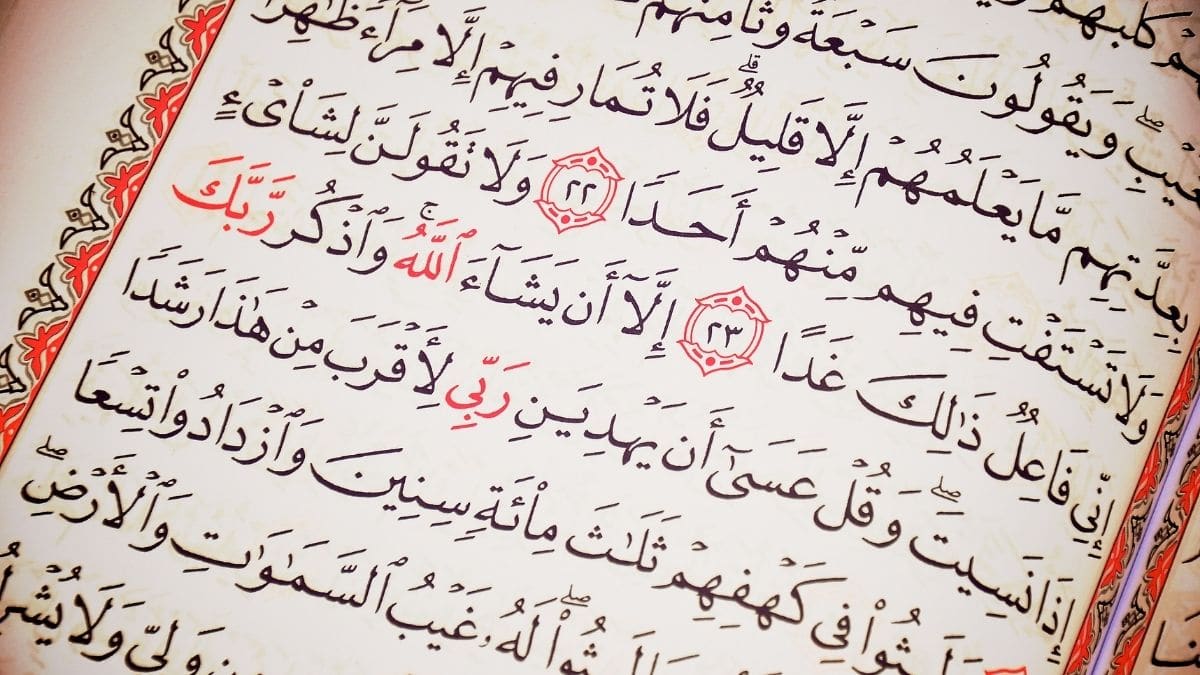 كَلْبُهُمْ
ٱلْغَيْبِ ۖ وَيَقُولُونَ سَبْعَةٌ وَثَامِنُهُمْ
بِعِدَّتِهِم مَّا يَعْلَمُهُمْ إِلَّا قَلِيلٌ ۗ فَلَا تُمَارِ فِيهِمْ إِلَّا مِرَآءً ظَٰهِرًا
وَلَا تَسْتَفْتِ فِيهِم مِّنْهُمْ أَحَدًا ٢٢ وَلَا تَقُولَنَّ لِشَا۟ىْءٍ
إِنِّي فَاعِلٌ ذَٰلِكَ غَدًا ٢٣ إِلَّآ أَن يَشَآءَ ٱللَّهُ ۚ وَٱذْكُر رَّبَّكَ
إِذَا نَسِيتَ ۖ وَقُلْ عَسَىٰٓ أَن يَهْدِيَنِ رَبِّي لِأَقْرَبَ مِنْ هَٰذَا رَشَدًا
وَلَبِثُوا۟ فِي كَهْفِهِمْ ثَلَٰثَ مِا۟ئَةٍ سِنِينَ وَٱزْدَادُوا۟ تِسْعًا
لَبِثُوا۟ ۖ لَهُۥ غَيْبُ ٱلسَّمَٰوَٰتِ وَٱلْأَرْضِ ۖ
وَلِيٍّ وَلَا يُشْرِكُ